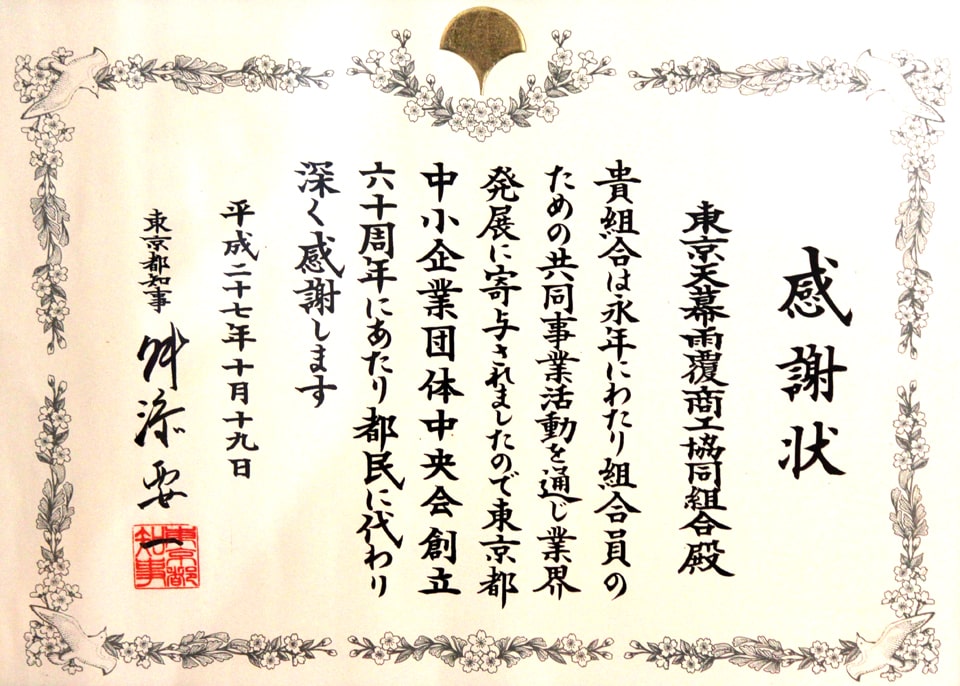 感謝状
東京天幕雨覆商工協同組合殿
貴組合は永年にわたり組合員の
ための共同事業活動を通じ業界
発展に寄与されましたので東京都
中小企業団体中央会創立
六十周年にあたり都民に代わり
深く感謝します
平成二十七年十月十九日
東京都知事 舛添要一
東京都知事